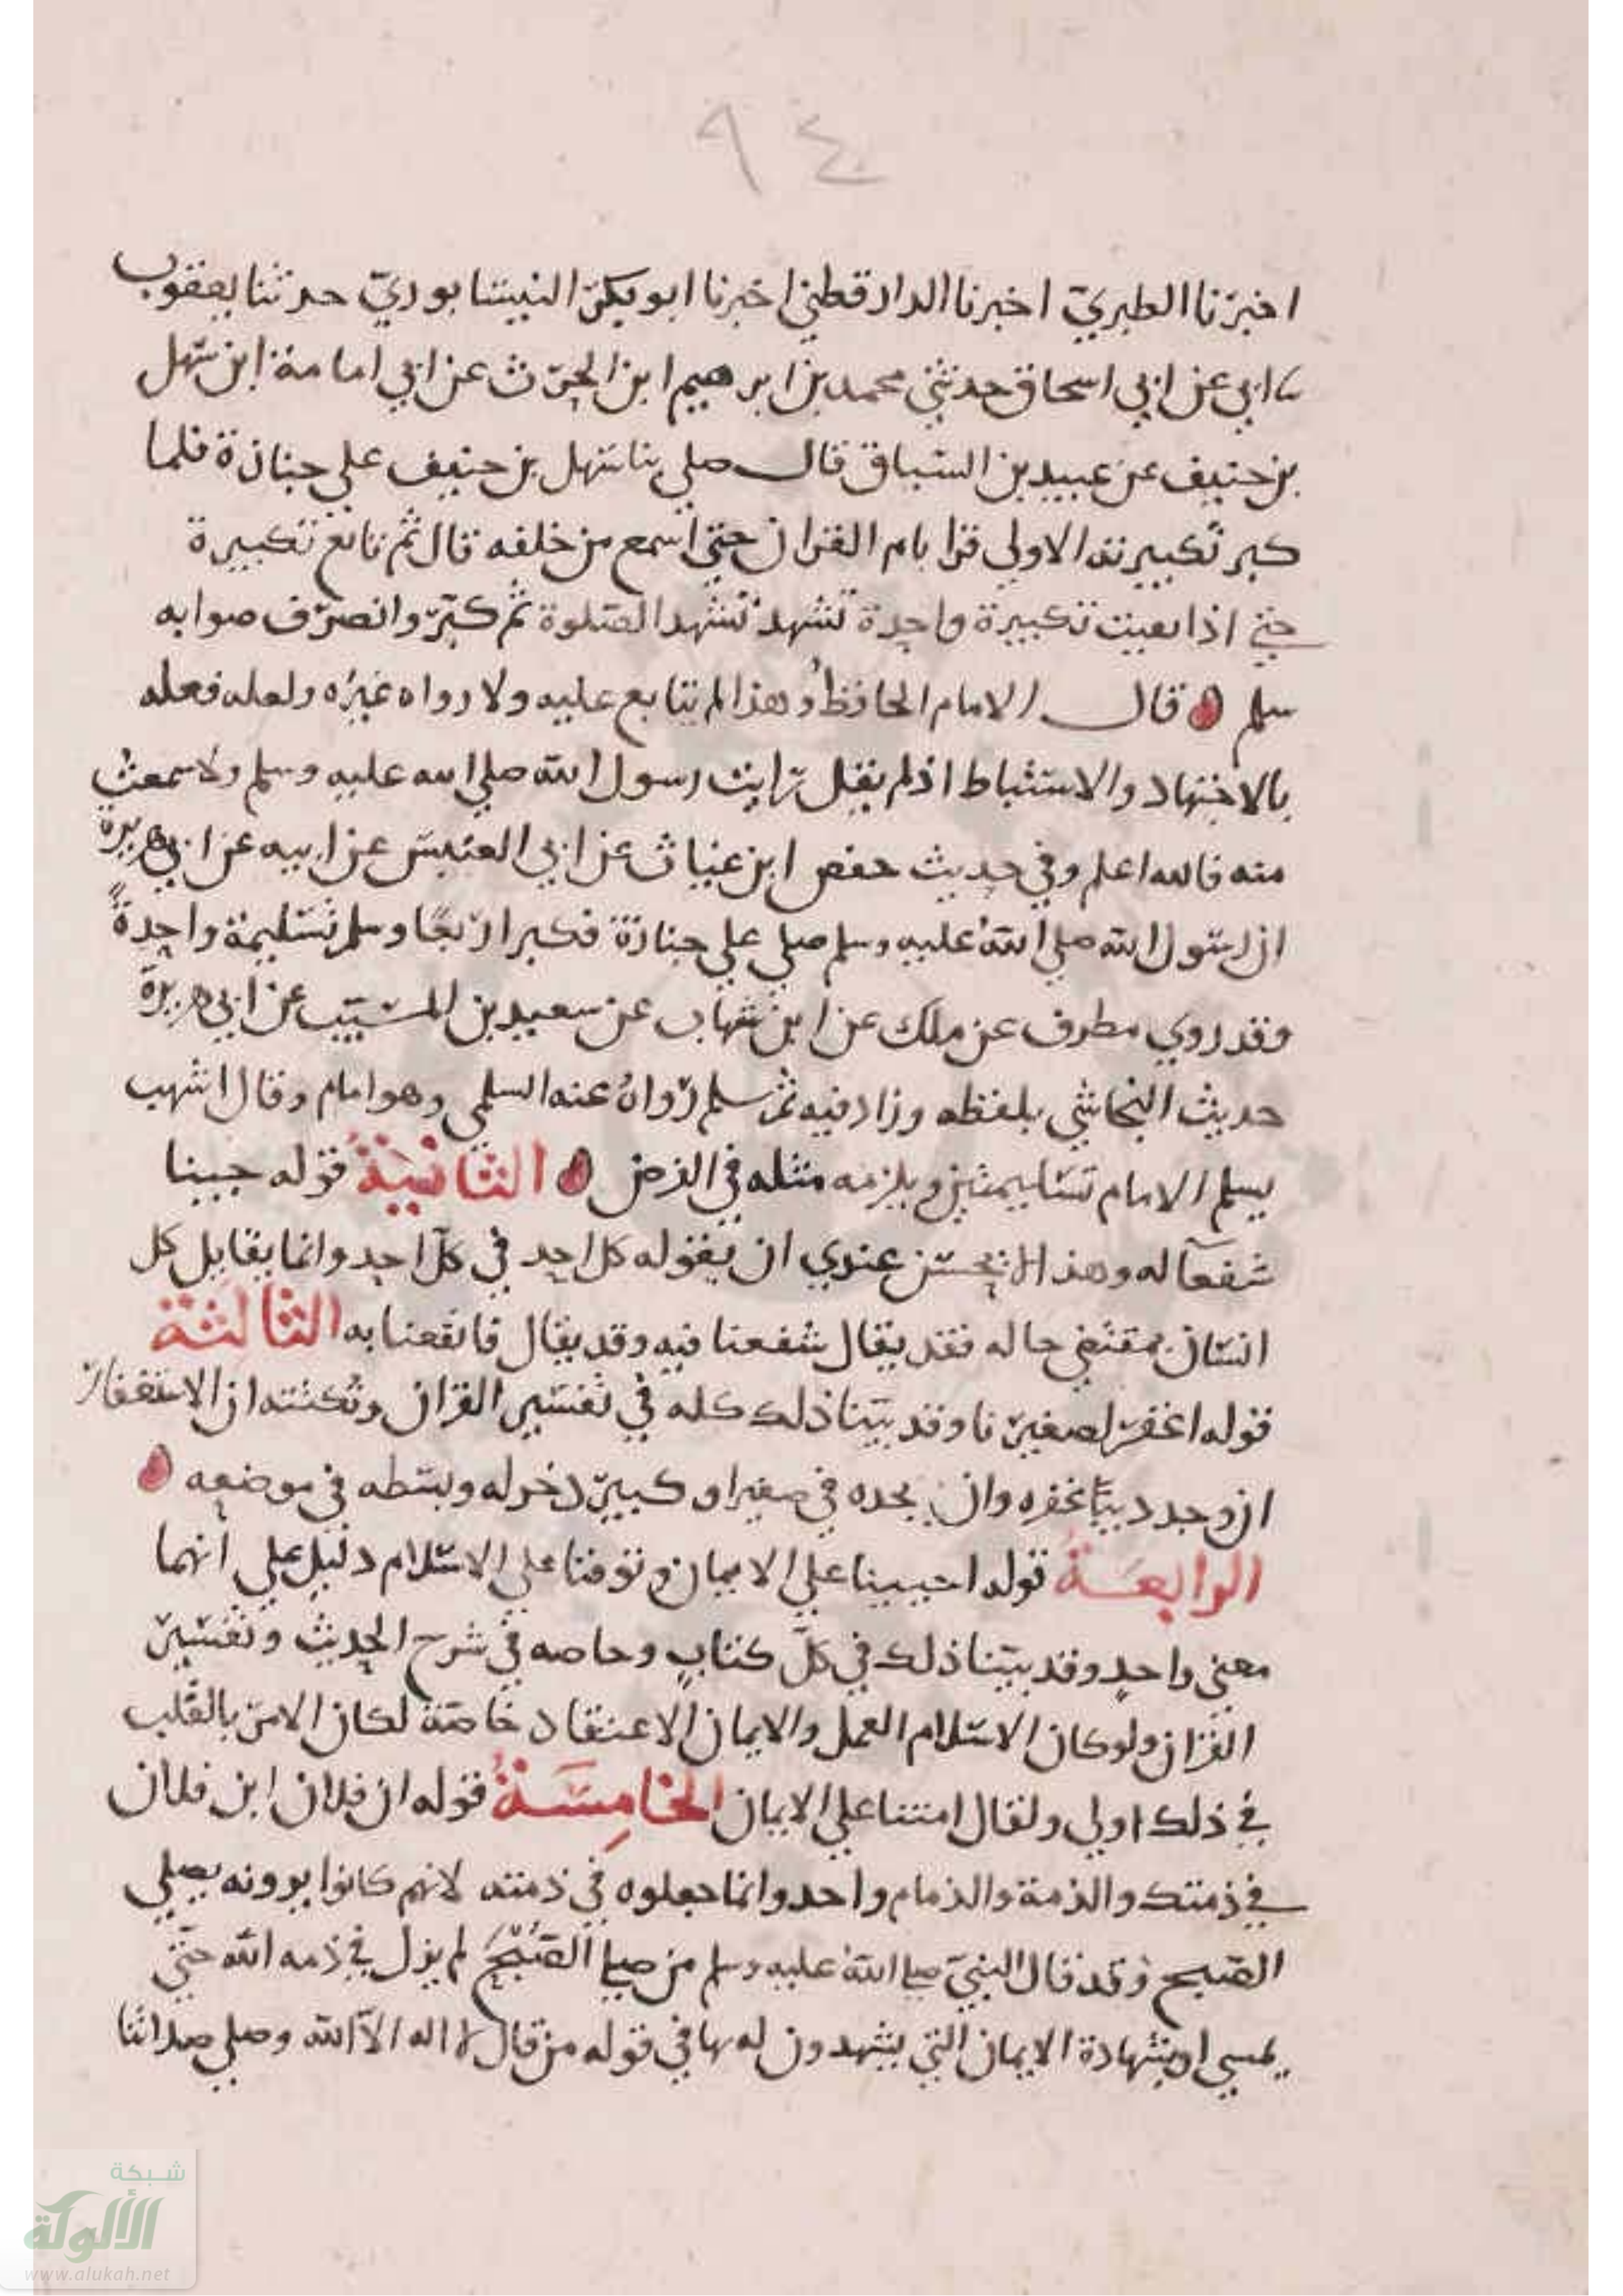 ٩٤
اخبرنا الطبري اخبرنا الدارقطني اخبرنا ابو بكر النيسابوري حدثنا يعقوب
ابي عن ابي اسحاق حدثني محمد بن ابرهيم ابن الحرث عن ابي امامة ابن سهل
بن حنيف عن عبيد بن السباق قال صلي بنا سهل بن حنيف علي جنازة فلما
كبر تكبيرته الاولي قرا بام القران حتي اسمع من خلفه قال ثم تابع تكبيرة
حتي اذا بقيت تكبيرة واحدة تشهد تشهد الصلوة ثم كبر وانصرف صوابه
سلم قال الامام الحافظ وهذا لم يتابع عليه ولا رواه غيره ولعله فعله
بالاجتهاد والاستنباط اذ لم يقل رايت رسول الله صلي الله عليه وسلم ولا سمعت
منه فالله اعلم وفي حديث حفص ابن غياث عن ابي العنبس عن ابيه عن ابي هريرة
ان رسول الله صلي الله عليه وسلم صلي علي جنازة فكبر اربعا وسلم تسليمة واحدة
وقد روي مطرف عن ملك عن ابن شهاب عن سعيد بن المسيب عن ابي هريرة
حديث النجاشي بلفظه وزاد فيه ثم سلم رواه عنه السلمي وهو امام وقال اشهب
يسلم الامام تسليمتين ويلزمه مثله في الفرض الثانية قوله جينا
شفعآ له وهذا لا يحسن عندي ان يقوله كل احد في كل احد وانما يقابل كل
انسان بمقتضي حاله فقد يقال شفعنا فيه وقد يقال فانفعنا به الثالثة
قوله اغفر لصغيرنا وقد بينا ذلك كله في تفسير القران ونكتته ان الاستغفار
ان وجد ذنبا غفره وان يجده في صغير او كبير ذخر له وبسطه في موضعه
الرابعة قوله احييينا علي الايمان وتوفنا علي الاسلام دليل علي انهما
معني واحد وقد بينا ذلك في كل كتاب وحاصه في شرح الحديث وتفسير
القران ولو كان الاسلام العمل والايمان الاعتقاد خاصة لكان الامر بالقلب
في ذلك اولي ولقال امتنا علي الايمان الخامسة قوله ان فلان ابن فلان
في ذمتك والذمة والذمام واحد وانما جعلوه في ذمته لانهم كانوا يرونه يصلي
الصبح وقد قال النبي صلي الله عليه وسلم من صلي الصبح لم يزل في ذمه الله حتي
يمسي او بشهادة الايمان التي يشهدون له بها في قوله من قال لا اله الا الله وصلي صلاتنا
شبكة
الألوكة
www.alukah.net